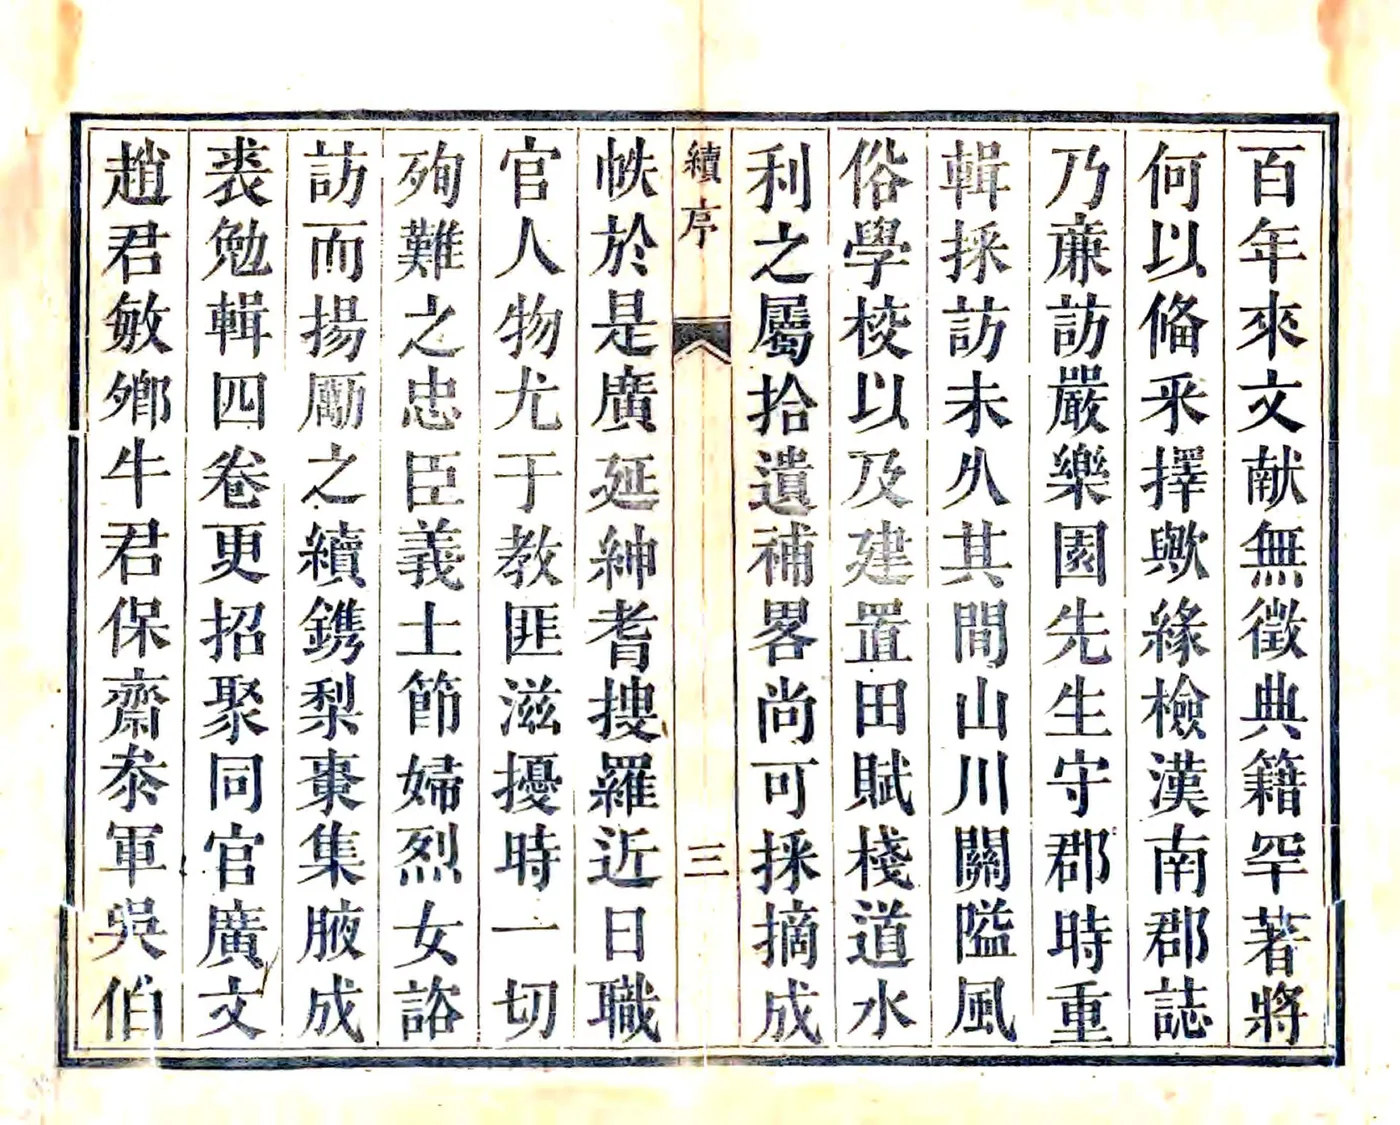 百年來文献無徵典籍罕著將
何以俻采擇歟緣檢漢南郡誌
乃亷訪嚴樂園先生守郡時重
輯採訪未久其間山川關隘風
俗學校以及建置田賦棧道水
利之屬拾遺補畧尚可採摘成
續序
三
帙於是廣延紳耆搜羅近日職
官人物尤于教匪滋擾時一切
殉難之忠臣義士節婦烈女諮
訪而揚勵之續鐫梨棗集腋成
裘勉輯四卷更招聚同官廣文
趙君敏鄉牛君保齋叅軍吳伯